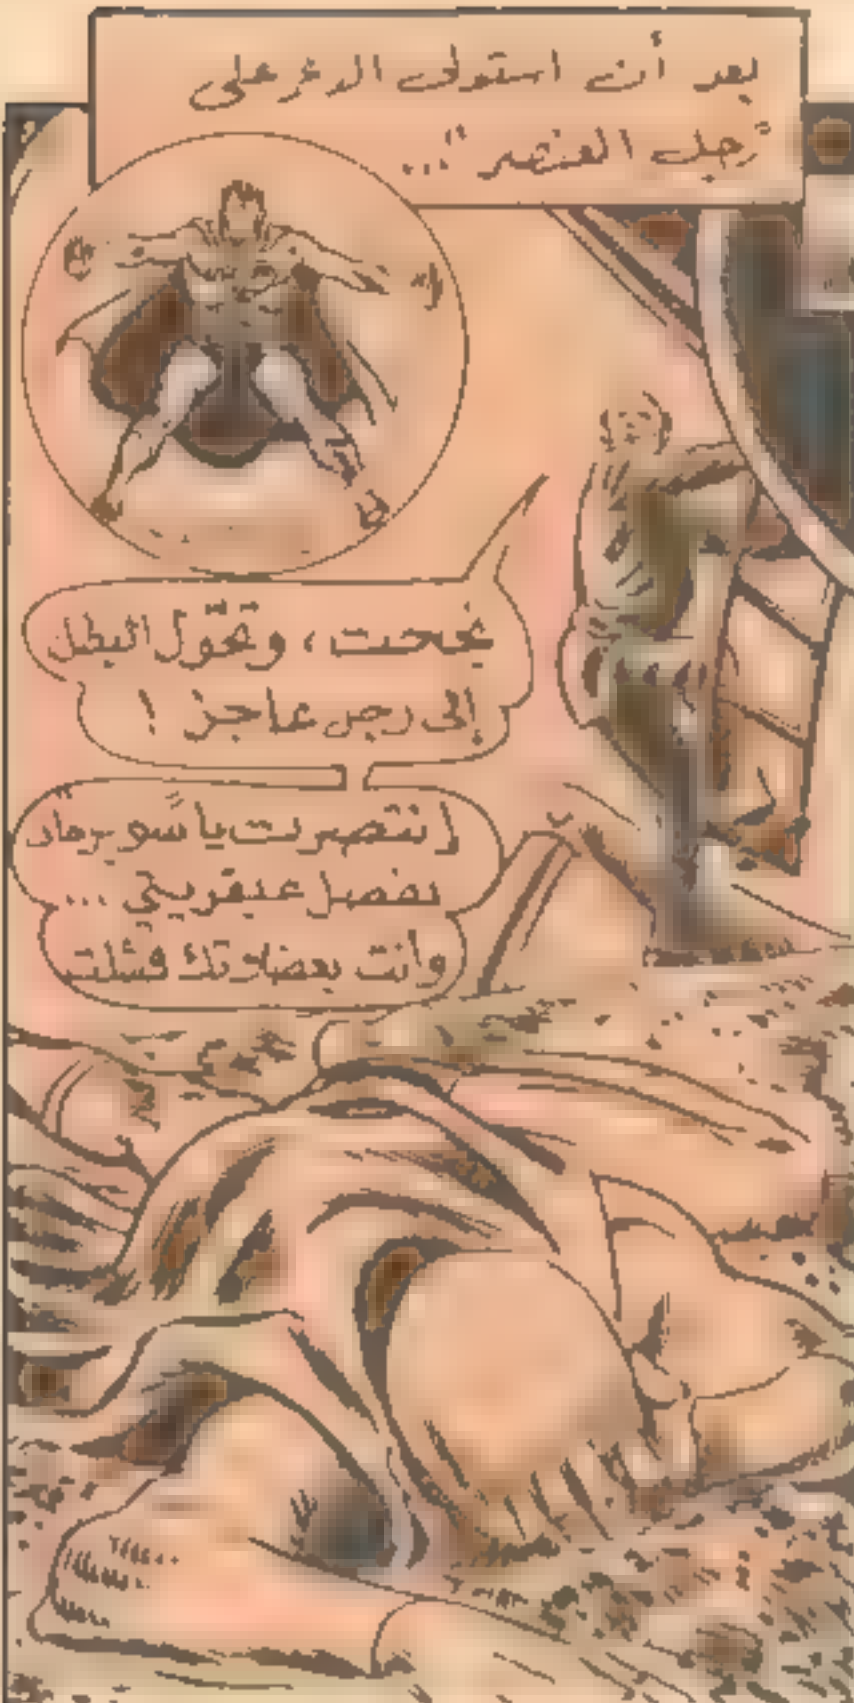 بعد أن استولى الذعر على
"رجل العنصر"...
نجحت، وتحوّل البطل
إلى رجل عاجز !
إنتصرت يا سوبرمان
بفضل عبقريتي ...
وأنت بعضلاتك فشلت